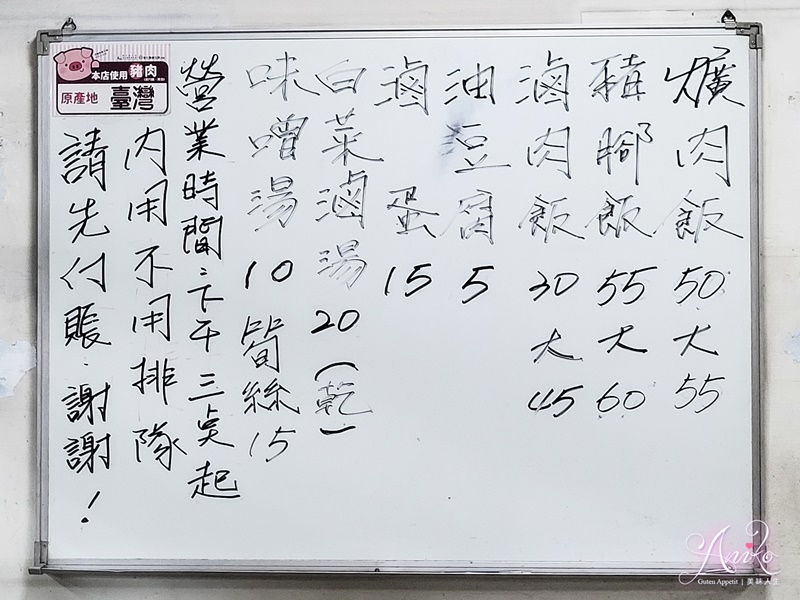 爌肉飯 50 大 55
豬腳飯 55 大 60
滷肉飯 30 大 45
油豆腐 5
滷 蛋 15
白菜滷湯 20 (乾)
味噌湯 10 筍絲 15
營業時間:下午三點起
內用不用排隊
請先付賬.謝謝!
本店使用 豬肉
原產地 臺灣
Aniko
Guten Appetit | 美味人生